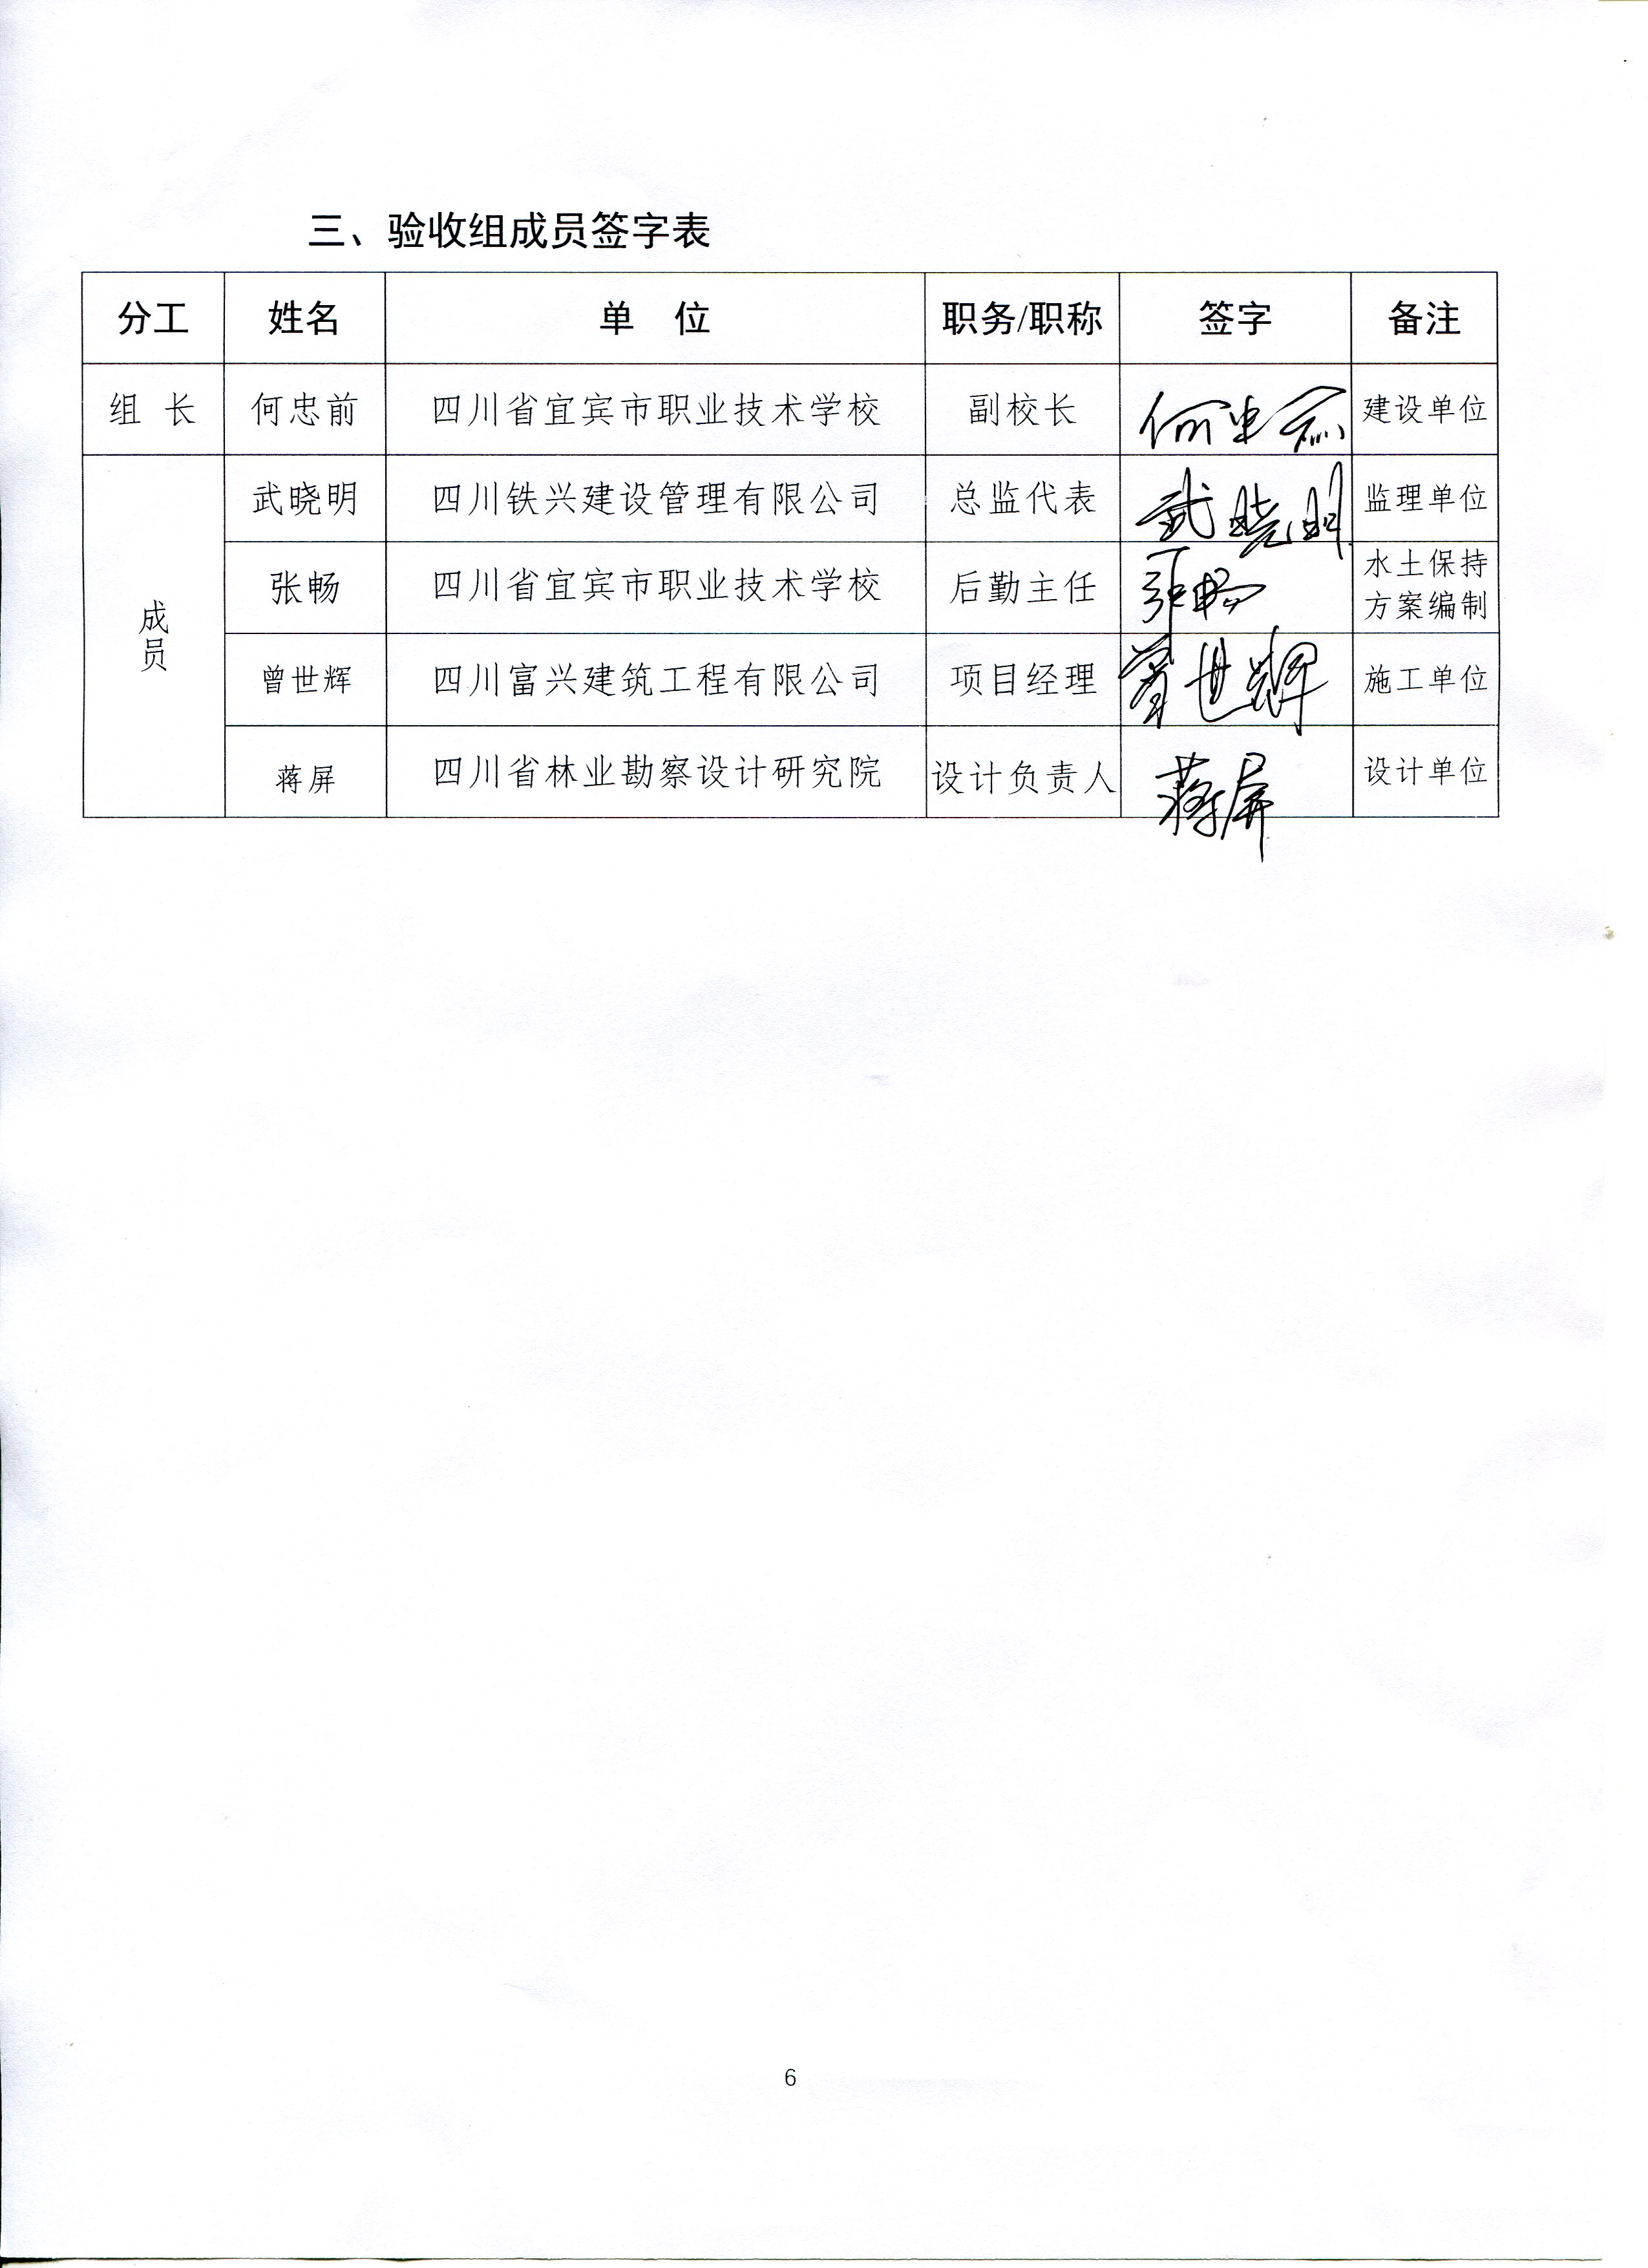 三、验收组成员签字表
分工 姓名 单 位 职务/职称 签字 备注
组 长 何忠前 四川省宜宾市职业技术学校 副校长 何忠前 建设单位
成员
武晓明 四川铁兴建设管理有限公司 总监代表 武晓明 监理单位
张畅 四川省宜宾市职业技术学校 后勤主任 张畅 水土保持
方案编制
曾世辉 四川富兴建筑工程有限公司 项目经理 曾世辉 施工单位
蒋屏 四川省林业勘察设计研究院 设计负责人 蒋屏 设计单位
6